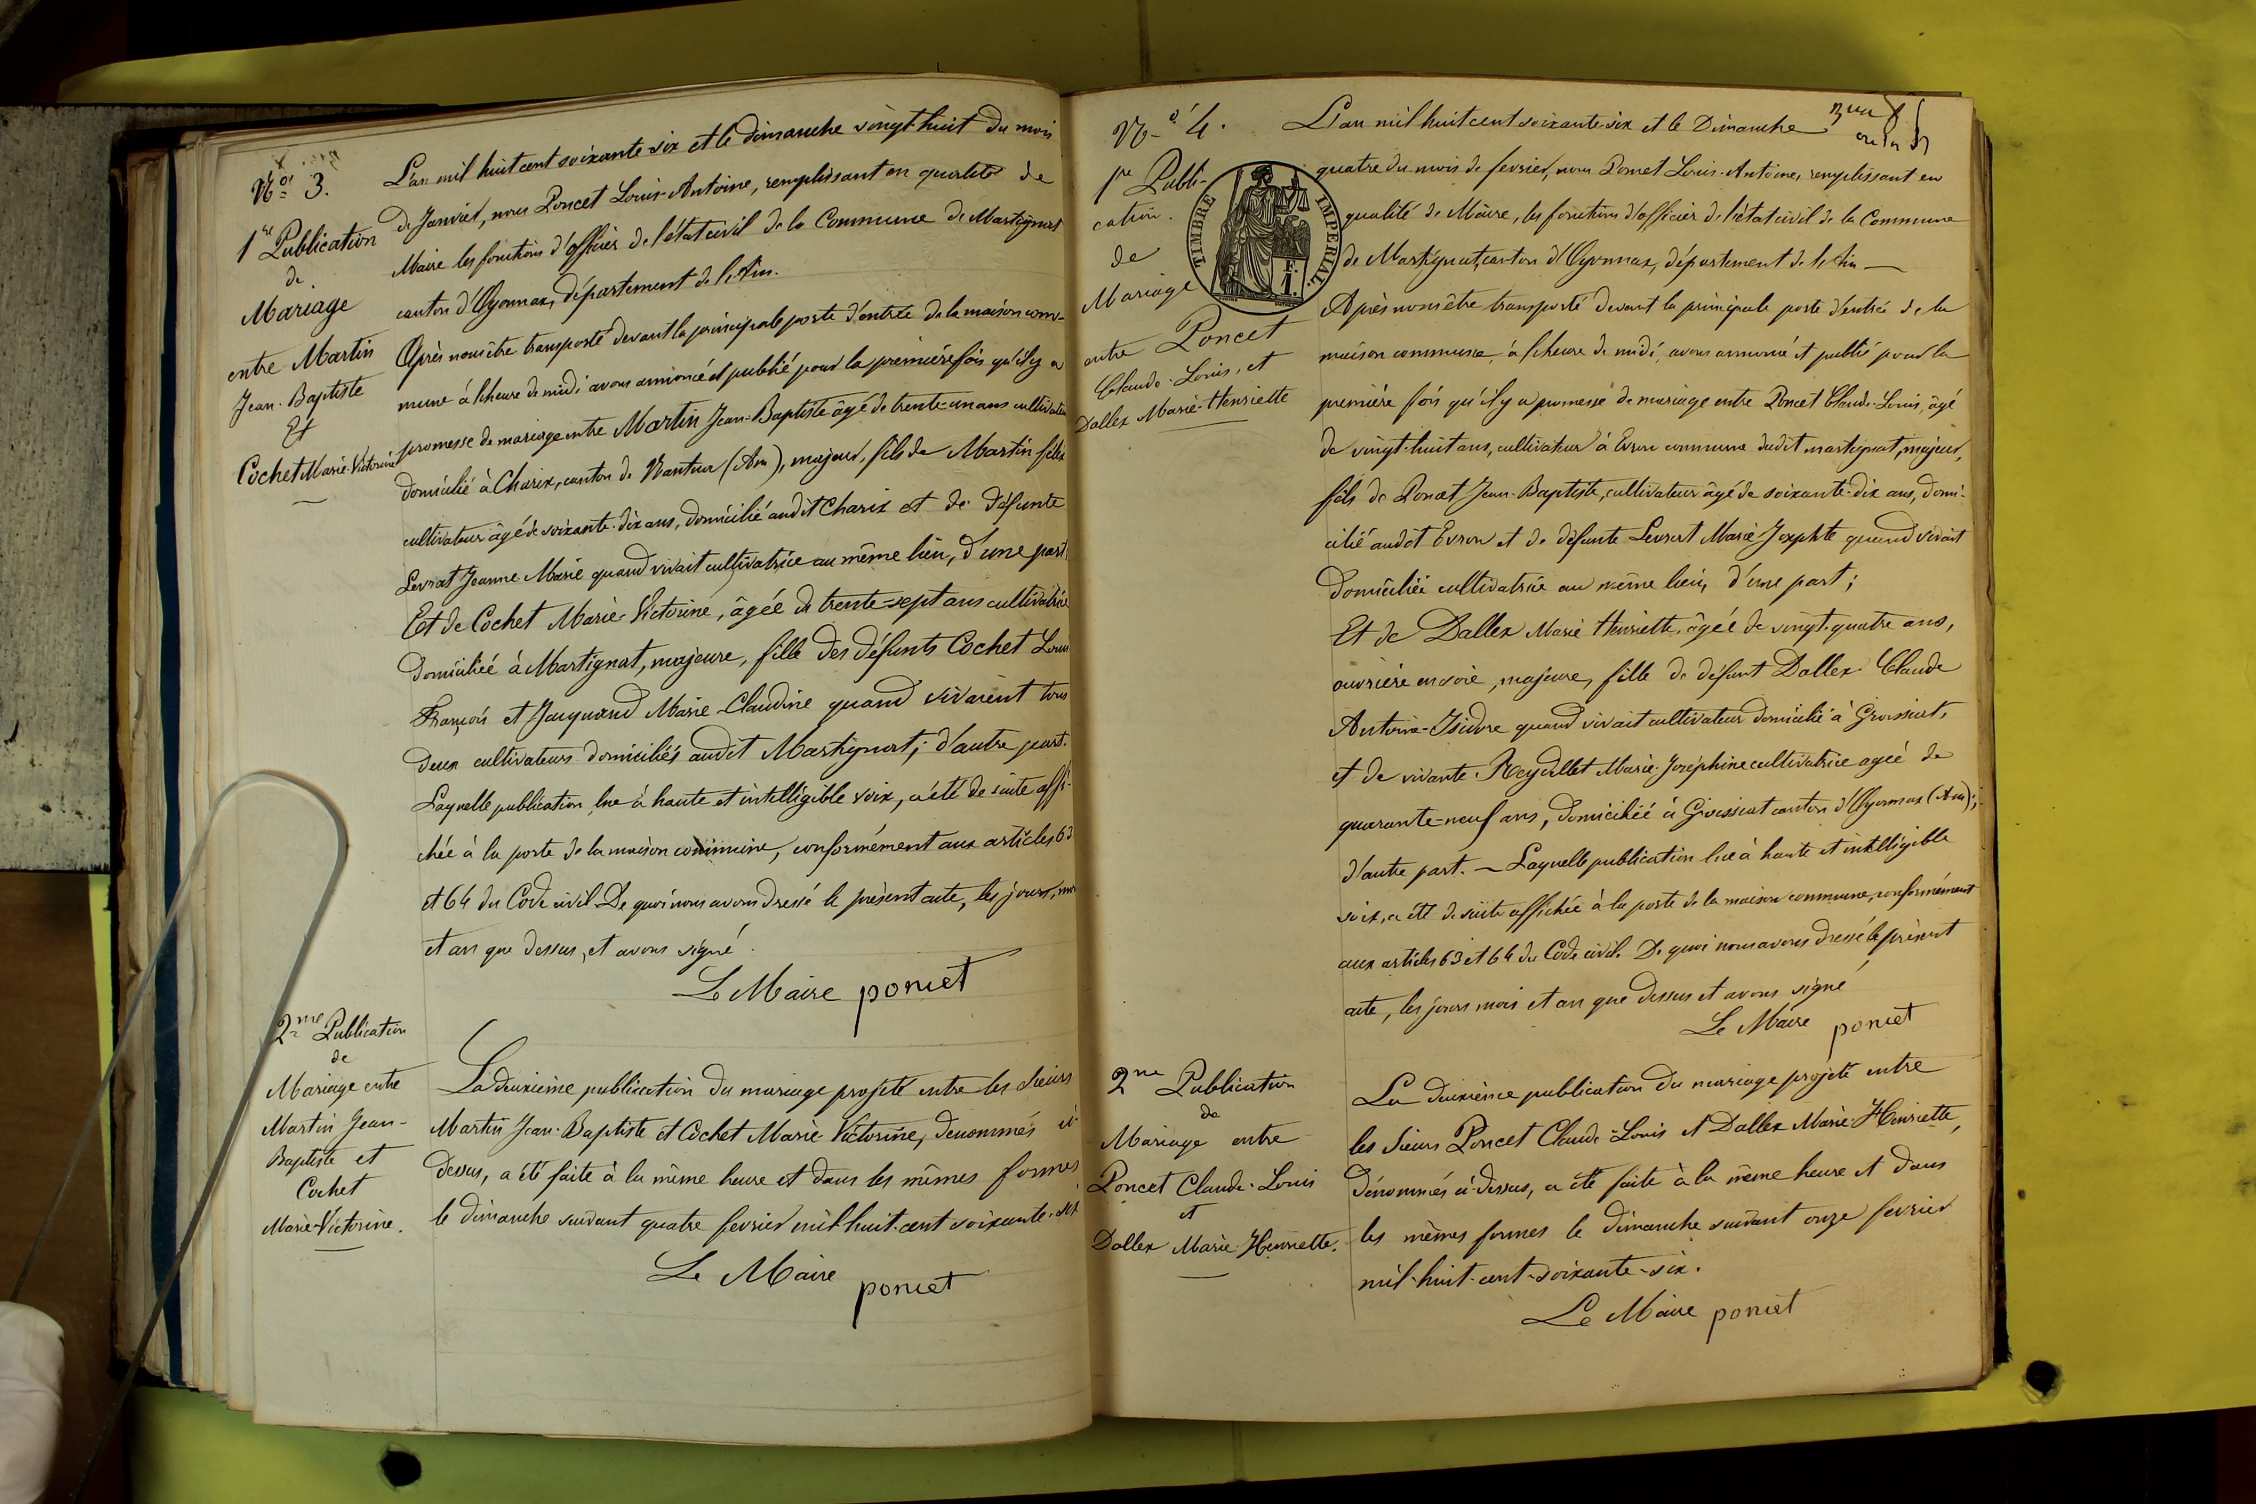 No 3.
1re Publication
de
Mariage
entre Martin
Jean-Baptiste
Et
Cochet Marie-Victorine
L'an mil huit cent soixante six et le dimanche vingt-huit du mois
de Janvier, nous Poncet Louis-Antoine, remplissant en qualité de
Maire les fonctions d'officier de l'état civil de la Commune de Martignat
canton d'Oyonnax, département de l'Ain.
Après nous être transporté devant la principale porte d'entrée de la maison com-
mune à l'heure de midi avons annoncé et publié pour la première fois qu'il y a
promesse de mariage entre Martin Jean-Baptiste âgé de trente-un ans cultivateur
domicilié à Charix, canton de Nantua (Ain), majeur, fils de Martin félix
cultivateur âgé de soixante-dix ans, domicilié audit Charix et de défunte
Levrat Jeanne-Marie quand vivait cultivatrice au même lieu, d'une part
Et de Cochet Marie-Victorine, âgée de trente-sept ans cultivatrice
domiciliée à Martignat, majeure, fille des défunts Cochet Louis
François et Jacquand Marie-Claudine quand vivaient tous
deux cultivateurs domiciliés audit Martignat; d'autre part.
Laquelle publication lue à haute et intelligible voix, a été de suite affi-
chée à la porte de la maison commune, conformément aux articles 63
et 64 du Code civil. De quoi nous avons dressé le présent acte, les jour,
et an que dessus, et avons signé.
Le Maire poncet
2me Publication
de
Mariage entre
Martin Jean-
Baptiste et
Cochet
Marie-Victorine.
La deuxième publication du mariage projeté entre les Sieurs
Martin Jean-Baptiste et Cochet Marie-Victorine, dénommés ci-
dessus, a été faite à la même heure et dans les mêmes formes
le dimanche suivant quatre fevrier mil-huit-cent soixante-six
Le Maire poncet
No 4.
1re Publi-
cation.
de
Mariage
entre Poncet
Claude-Louis, et
Dallex Marie-Henriette
TIMBRE IMPERIAL
L'an mil huit cent soixante-six et le Dimanche
quatre du mois de fevrier, nous Poncet Louis-Antoine, remplissant en
qualité de Maire, les fonctions d'officier de l'état civil de la Commune
de Martignat, canton d'Oyonnax, département de l'Ain
Après nous être transporté devant la principale porte d'entrée de la
maison commune, à l'heure de midi, avons annoncé et publié pour la
première fois qu'il y a promesse de mariage entre Poncet Claude-Louis, âgé
de vingt-huit ans, cultivateur à Evron commune dudit martignat, majeur,
fils de Poncet Jean-Baptiste, cultivateur âgé de soixante-dix ans, domi-
cilié audit Evron et de défunte Levrat Marie Josephte quand vivait
domiciliée cultivatrice au même lieu, d'une part;
Et de Dallex Marie Henriette, âgée de vingt-quatre ans,
ouvrière en soie, majeure, fille de défunt Dallex Claude
Antoine-Isidore quand vivait cultivateur domicilié à Groissiat,
et de vivante Reydellet Marie-Joséphine cultivatrice agée de
quarante-neuf ans, domiciliée à Groissiat canton d'Oyonnax (Ain);
d'autre part. — Laquelle publication lue à haute et intelligible
voix, a été de suite affichée à la porte de la maison commune, conformément
aux articles 63 et 64 du Code civil. De quoi nous avons dressé le présent
acte, les jours mois et an que dessus et avons signé
Le Maire poncet
2me Publication
de
Mariage entre
Poncet Claude-Louis
et
Dallex Marie-Henriette.
La deuxième publication du mariage projeté entre
les Sieurs Poncet Claude-Louis et Dallex Marie-Henriette,
dénommés ci-dessus, a été faite à la même heure et dans
les mêmes formes le dimanche suivant onze fevrier
mil-huit-cent-soixante-six.
Le Maire poncet